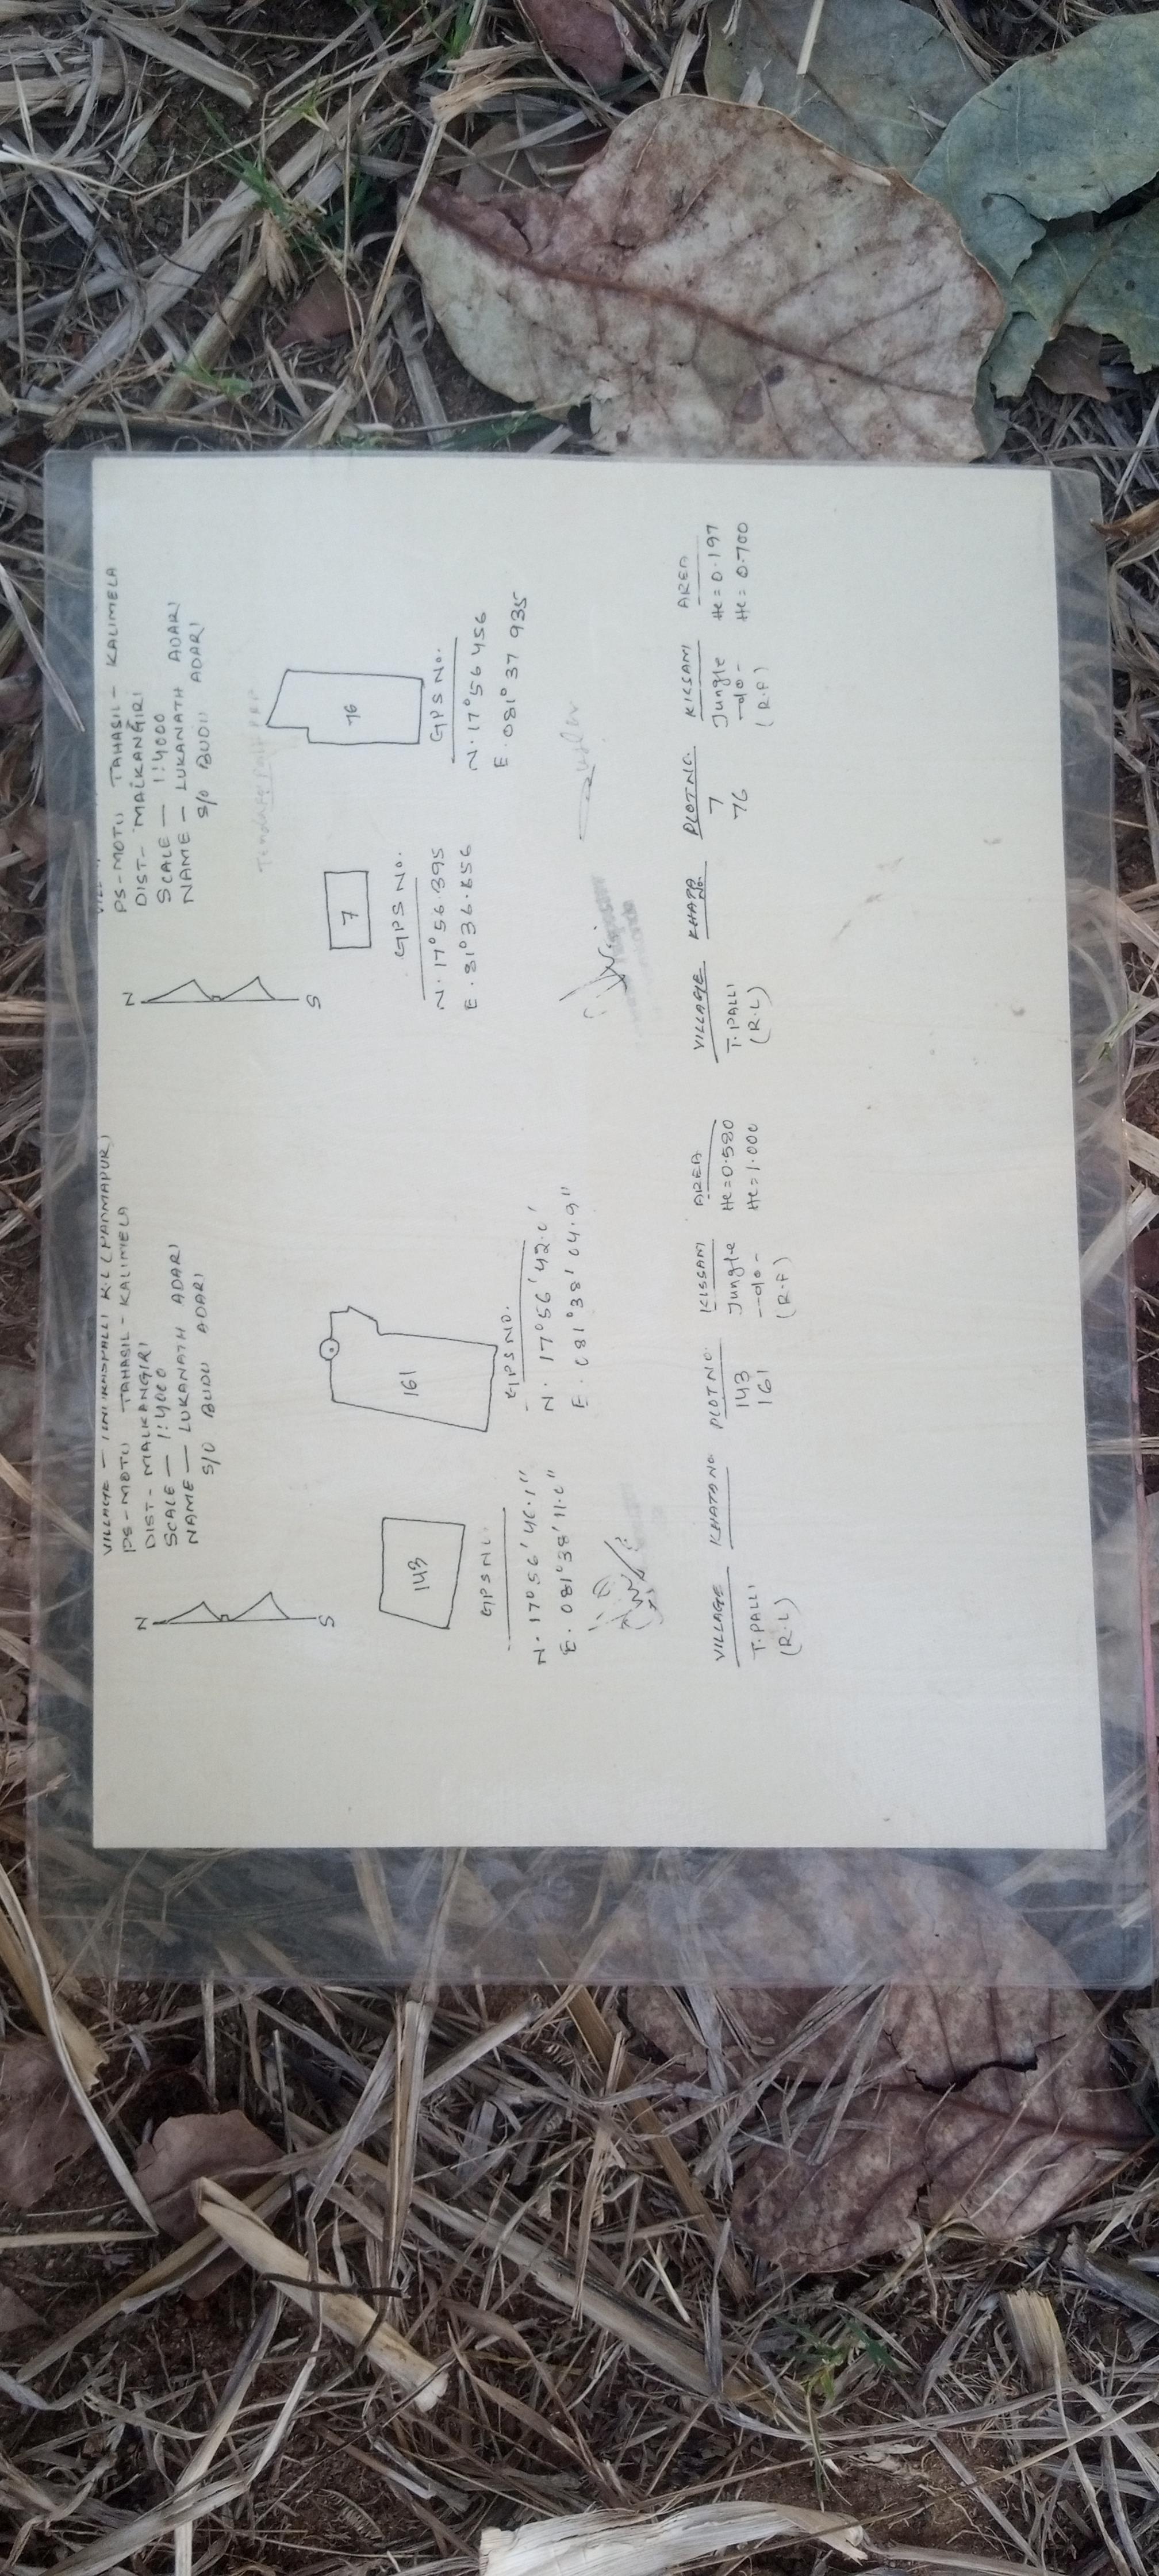 VILLAGE — R.L (PADMAPUR)
PS-MOTU TAHASIL- KALIMELA
DIST- MALKANGIRI
SCALE — 1:4000
NAME — LUKANATH ADARI
S/O BUDU ADARI
N
S
143
161
GPS NO.
N. 17°56'40.1"
E. 081°38'11.0"
GPS NO.
N. 17°56'42.0'
E. 081°38'04.9"
VILLAGE KHATA NO. PLOT NO. KISSAM AREA
T.PALLI 143 Jungle He=0.580
(R.L) 161 —do- He=1.000
(R.F)
PS-MOTU TAHASIL- KALIMELA
DIST- MALKANGIRI
SCALE — 1:4000
NAME — LUKANATH ADARI
S/O BUDU ADARI
N
S
7
76
GPS No.
N. 17°56.395
E. 81°36.656
GPS No.
N. 17°56 456
E. 081° 37 935
VILLAGE KHATA No. PLOT NO. KISSAM AREA
T.PALLI 7 Jungle He=0.197
(R.L) 76 —do- He=0.700
(R.F)